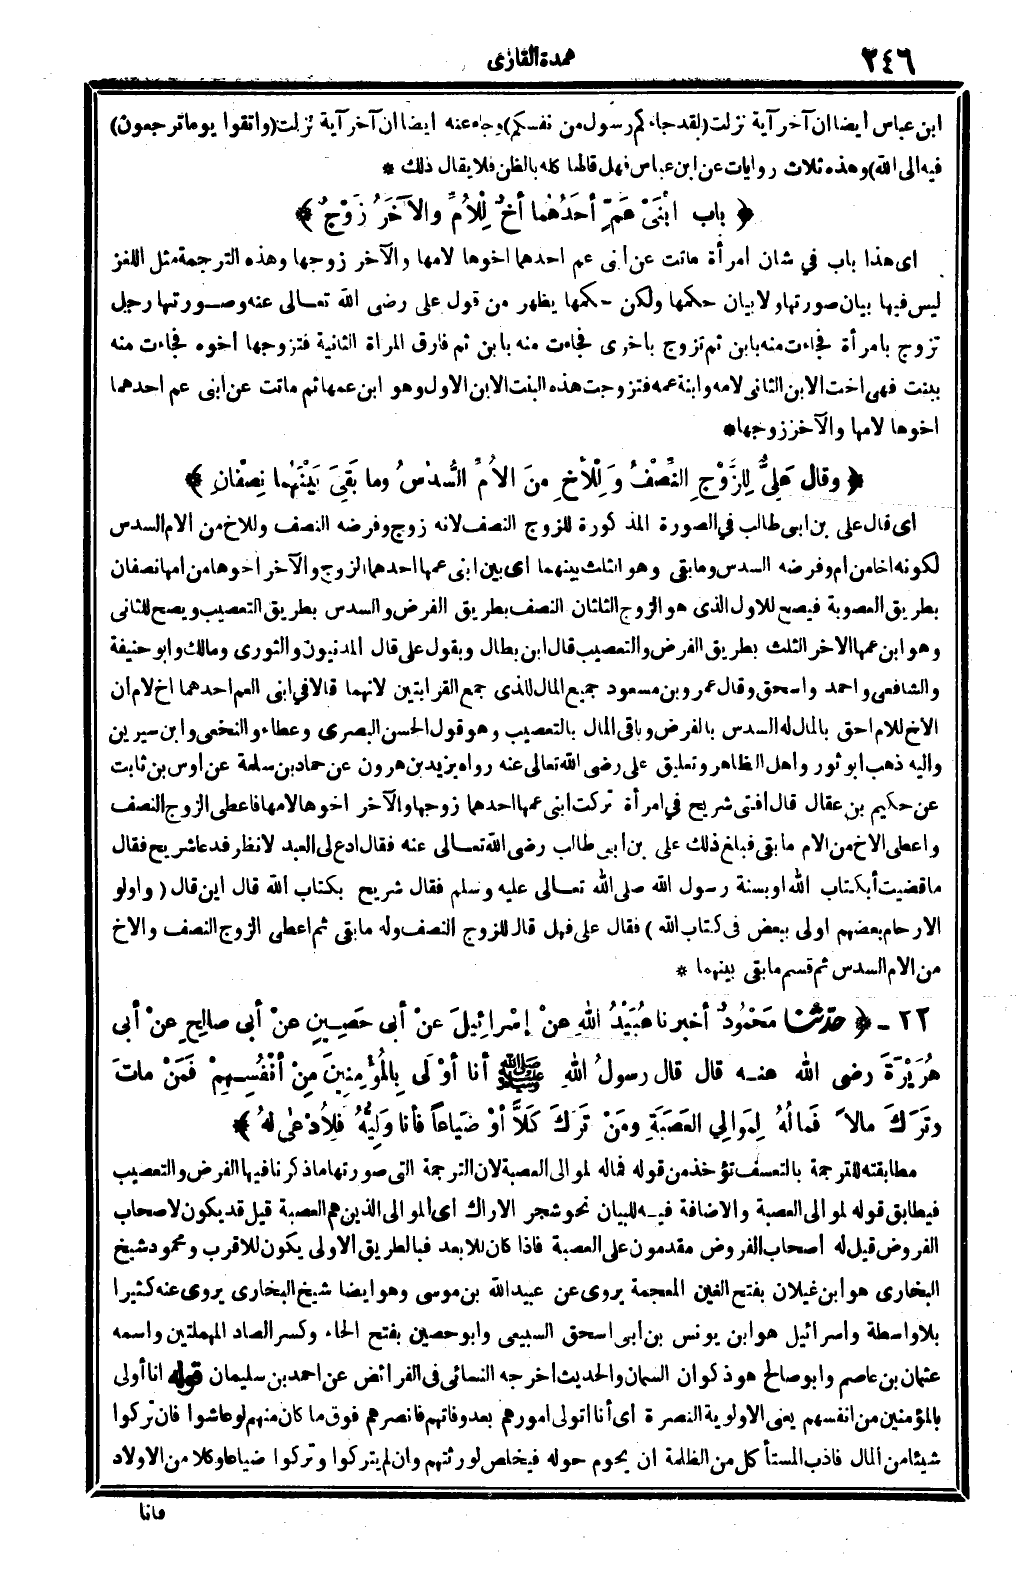 ٢٤٦
عمدة القارى
ابن عباس أيضا ان آخر آية نزلت (لقد جاءكم رسول من نفسكم) وجاء عنه ايضا ان آخر آية نزلت (واتقوا يوما ترجعون)
فيه الى الله) وهذه ثلاث روايات عن ابن عباس فهل قالها كله بالظن فلا يقال ذلك *
﴿ باب ابْنَىْ عَمٍّ أحَدُهُما أخٌ لِلْأُمِّ والآخَرُ زَوْجٌ ﴾
اى هذا باب في شان امرأة ماتت عن ابنى عم احدهما اخوها لامها والآخر زوجها وهذه الترجمة مثل اللغز
ليس فيها بيان صورتها ولا بيان حكمها ولكن حكمها يظهر من قول على رضى الله تعـالى عنه وصـورتها رجل
تزوج بامرأة فجاءت منه بابن ثم تزوج باخرى فجاءت منه بابن ثم فارق المراة الثانية فتزوجها أخوه فجاءت منه
ببنت فهى اخت الابن الثانى لامه وابنة عمه فتزوجت هذه البنت الابن الاول وهو ابن عمها ثم ماتت عن ابنى عم احدهما
اخوها لامها والآخر زوجها *
﴿ وقال عَلِىٌّ لِلزَّوْجِ النِّصْفُ وَلِلْأخِ مِنَ الأُمِّ السُّدُسُ وما بَقِىَ بَيْنَهُما نِصْفانِ ﴾
اى قال على بن ابى طالب في الصورة المذكورة للزوج النصف لانه زوج وفرضه النصف وللاخ من الام السدس
لكونه اخا من ام وفرضه السدس وما بقى وهو الثلث بينهما اى بين ابنى عمها احدهما الزوج والآخر اخوها من امها نصفان
بطريق العصوبة فيصح للاول الذى هو الزوج الثلثان النصف بطريق الفرض والسدس بطريق التعصيب ويصح للثانى
وهو ابن عمها الاخر الثلث بطريق الفرض والتعصيب قال ابن بطال وبقول على قال المدنيون والثورى ومالك وابو حنيفة
والشافعى واحمد واسحق وقال عمر وبن مسعود جميع المال للذى جمع القرابتين لانهما قالا في ابنى العم احدهما اخ لام ان
الاخ للام احق بالمال له السدس بالفرض وباقى المال بالتعصيب وهو قول الحسن البصرى وعطاء والنخعى وابن سيرين
واليه ذهب ابو ثور وأهل الظاهر وتعليق على رضى الله تعالى عنه رواه يزيد بن هرون عن حماد بن سلمة عن أوس بن ثابت
عن حكيم بن عقال قال افتى شريح في امرأة تركت ابنى عمها احدهما زوجها والآخر اخوها لامها فاعطى الزوج النصف
واعطى الاخ من الام ما بقى فبلغ ذلك على بن أبى طالب رضى الله تعـالى عنه فقال ادع لى العبد لانظر قد عا شريح فقال
ما قضيت أبكتاب الله او بسنة رسول الله صلى الله تعـالى عليه وسلم فقال شريح بكتاب الله قال اين قال (واولو
الارحام بعضهم اولى ببعض فى كتاب الله) فقال على فهل قال للزوج النصف وله ما بقى ثم اعطى الزوج النصف والاخ
من الام السدس ثم قسم ما بقى بينهما *
٢٢ - ﴿ حدّثنا مَحْمُودٌ أخبرنا عُبَيْدُ اللهِ عنْ إسْرائِيلَ عَنْ أبى حَصِينٍ عنْ أبى صالِحٍ عنْ أبى
هُرَيْرَةَ رضى الله عنـه قال قال رسولُ اللهِ ﷺ أنا أوْلَى بِالمُؤْمِنِينَ مِنْ أنْفُسِـهِمْ فَمَنْ ماتَ
وتَرَكَ مالاً فَمالُهُ لِمَوالِي العَصَبَةِ ومَنْ تَرَكَ كَلاًّ أوْ ضَياعاً فأنا وَلِيُّهُ فَلِأُدْعَى لهُ ﴾
مطابقته للترجمة بالتعسف تؤخذ من قوله فماله لموالى العصبة لان الترجمة التى صورتها ما ذكرنا فيها الفرض والتعصيب
فيطابق قوله لموالى العصبة والاضافة فيـه للبيان نحو شجر الاراك اى الموالى الذين هم العصبة قيل قد يكون لاصحاب
الفروض قيل له أصحاب الفروض مقدمون على العصبة فاذا كان للابعد فبالطريق الاولى يكون للاقرب ومحمود شيخ
البخارى هو ابن غيلان بفتح الغين المعجمة يروى عن عبيد الله بن موسى وهو ايضا شيخ البخارى يروى عنه كثيرا
بلا واسطة واسرائيل هو ابن يونس بن أبى اسحق السبيعى وابو حصين بفتح الحاء وكسر الصاد المهملتين واسمه
عثمان بن عاصم وابو صالح هو ذكوان السمان والحديث اخرجه النسائى فى الفرائض عن احمد بن سليمان قوله انا أولى
بالمؤمنين من انفسهم يعنى الاولوية النصرة اى أنا اتولى امورهم بعد وفاتهم فانصرهم فوق ما كان منهم لو عاشوا فان تركوا
شيئا من المال فاذب المستأكل من الظلمة ان يحوم حوله فيخلص لورثتهم وان لم يتركوا وتركوا ضياعا وكلا من الاولاد
فانا